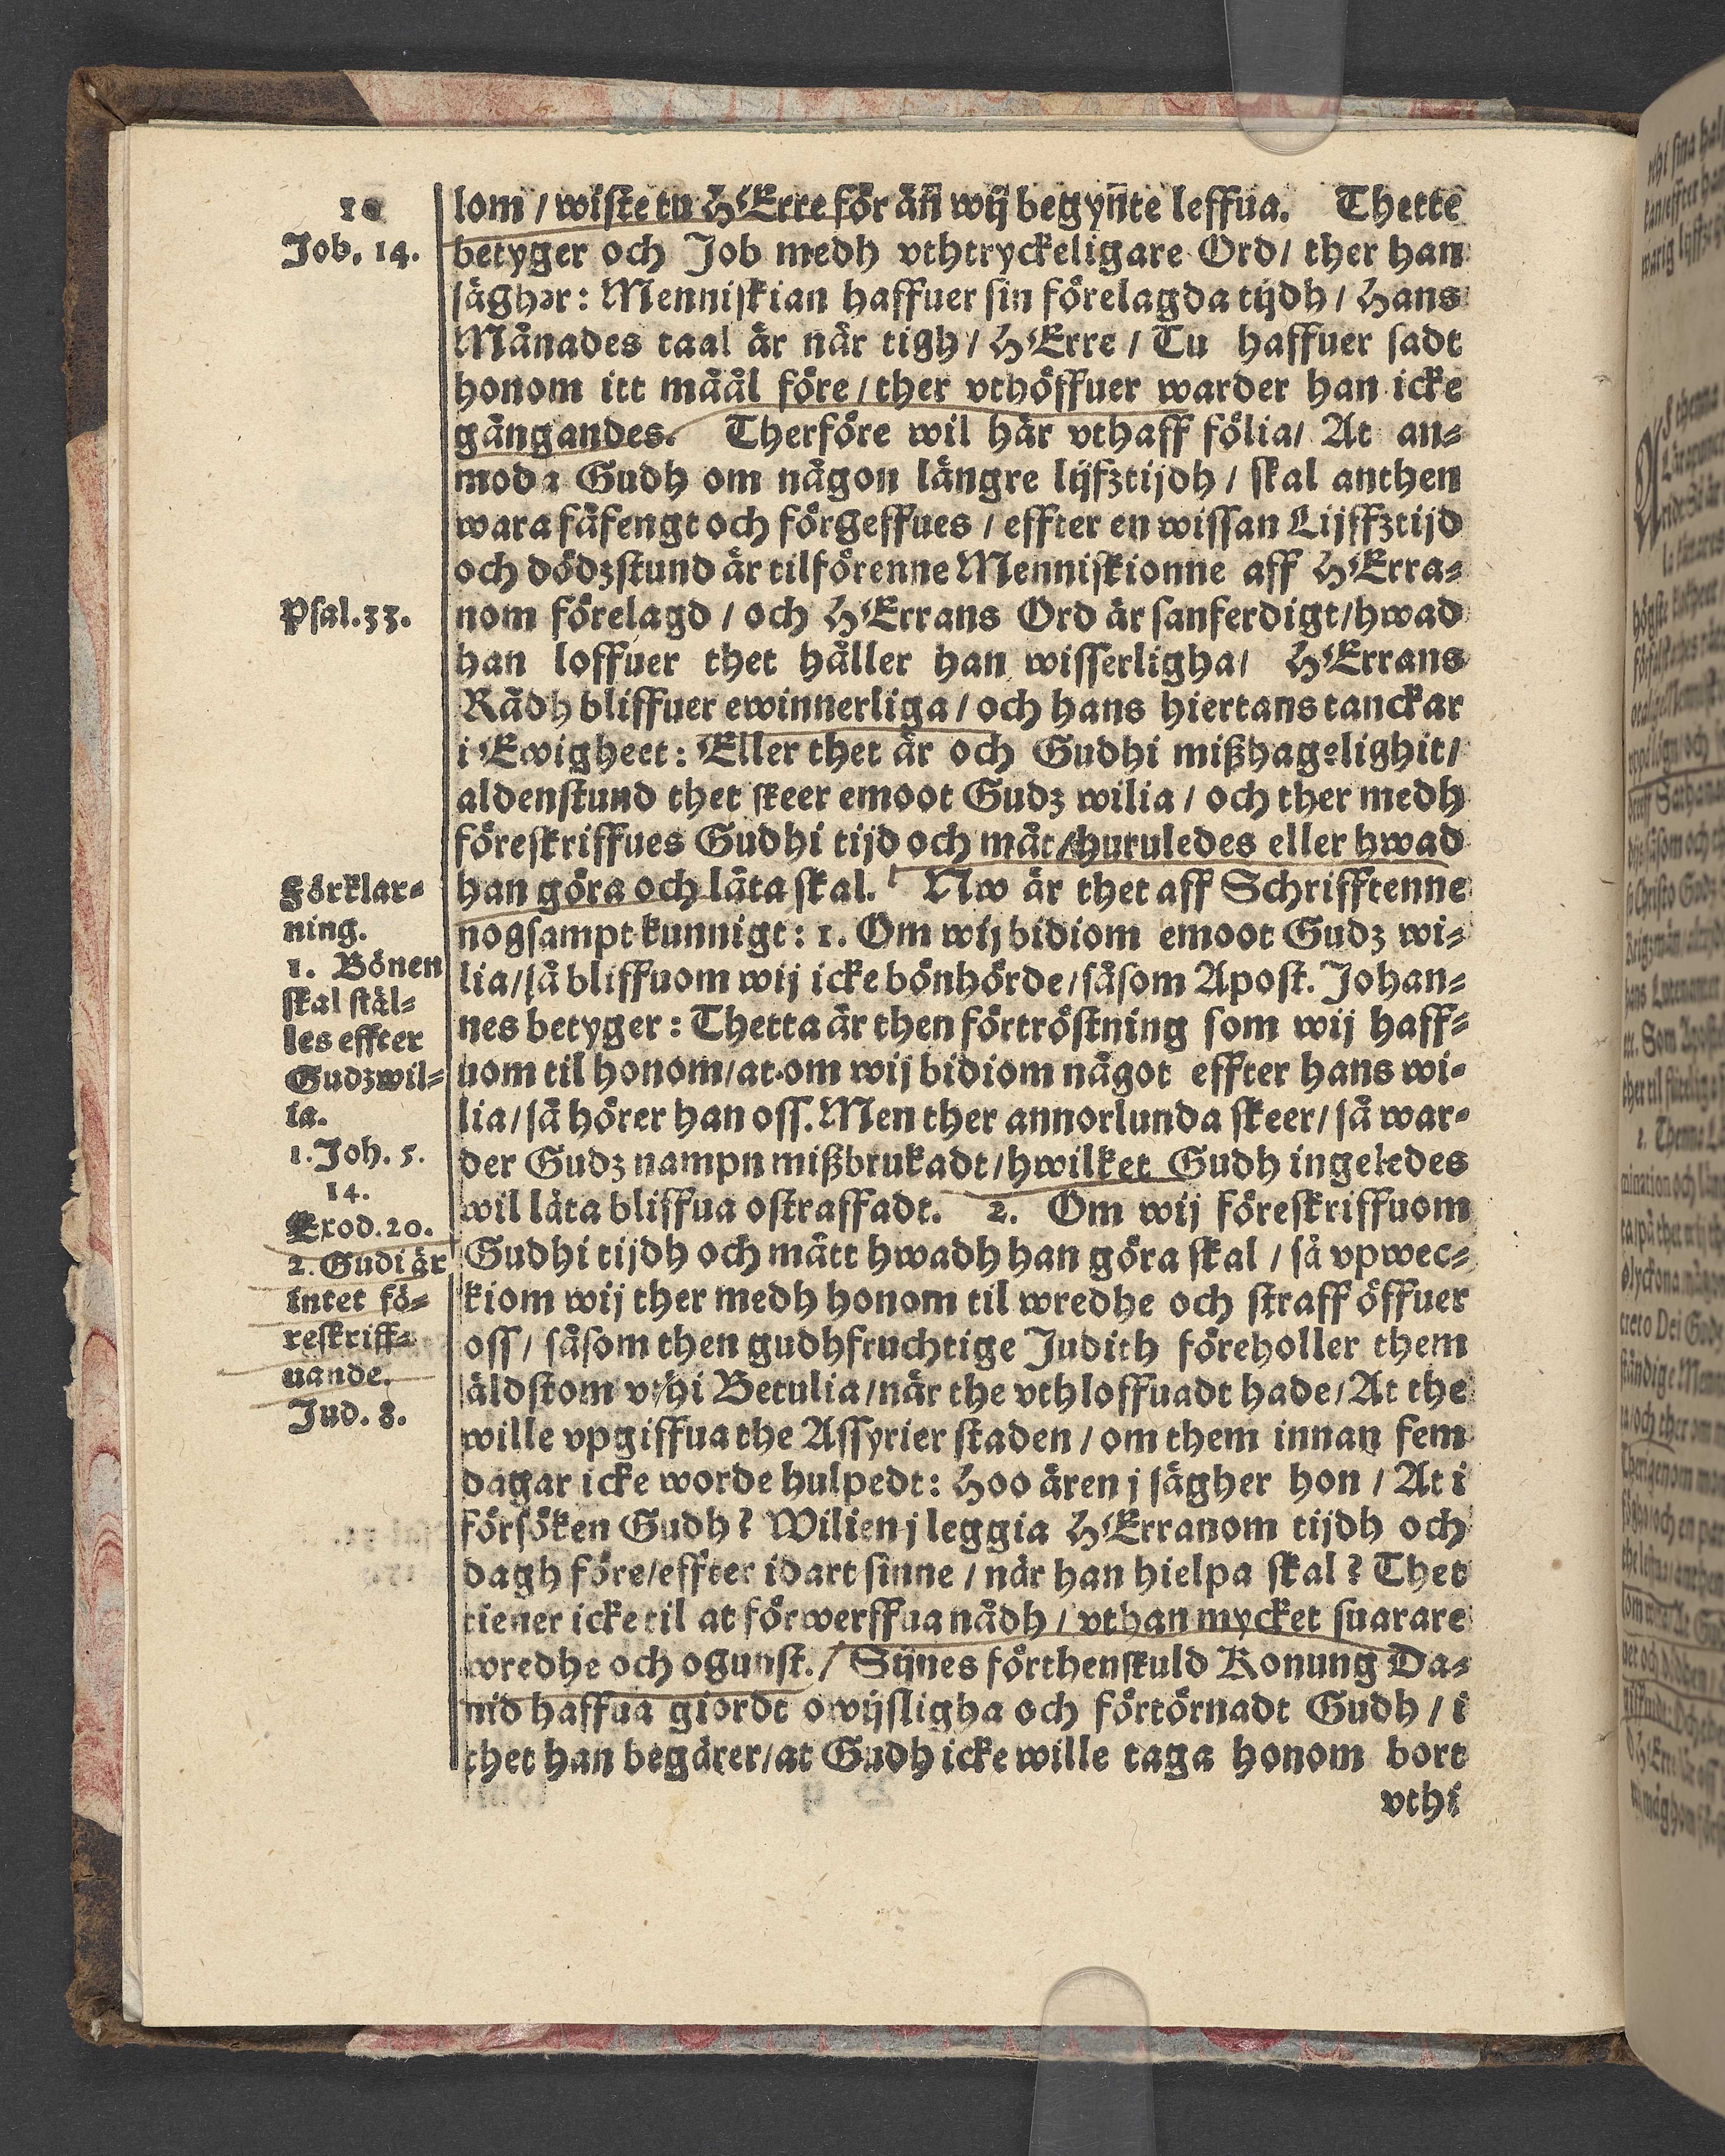 10
Job. 14.
lom / wiste tu HErre för än̄ wij begyn̄te leffua. Thette
betyger och Job medh vthtryckeligare Ord / ther han
sägher: Menniskian haffuer sin förelagda tijdh / Hans
Månades taal är när tigh / HErre / Tu haffuer sadt
honom itt måål före / ther vthöffuer warder han icke
gångandes. Therföre wil här vthaff fölia / At an⸗
moda Gudh om någon längre lijfztijdh / skal anthen
wara fåfengt och förgeffues / effter en wissan Lijffztijd
och dödzstund är tilförenne Menniskionne aff HErra⸗
Psal. 33.
nom förelagd / och HErrans Ord är sanferdigt / hwad
han loffuer thet håller han wisserligha / HErrans
Rådh bliffuer ewinnerliga / och hans hiertans tanckar
i Ewigheet: Eller thet är och Gudhi mißhagelighit /
aldenstund thet skeer emoot Gudz wilia / och ther medh
föreskriffues Gudhi tijd och måt / huruledes eller hwad
Förklar⸗
ning.
1. Bönen
skal stäl⸗
les effter
Gudz wil⸗
ia.
1. Joh. 5.
14.
Exod. 20.
2. Gudi är
intet fö⸗
reskriff⸗
uande.
Jud. 8.
han göra och låta skal. Nw är thet aff Schrifftenne
nogsampt kunnigt: 1. Om wij bidiom emoot Gudz wi⸗
lia / så bliffuom wij icke bönhörde / såsom Apost. Johan⸗
nes betyger: Thetta är then förtröstning som wij haff⸗
uom til honom / at om wij bidiom något effter hans wi⸗
lia / så hörer han oss. Men ther annorlunda skeer / så war⸗
der Gudz nampn mißbrukadt / hwilket Gudh ingeledes
wil låta bliffua ostraffadt. 2. Om wij föreskriffuom
Gudhi tijdh och mått hwadh han göra skal / så vpwec⸗
kiom wij ther medh honom til wredhe och straff öffuer
oss / såsom then gudhfruchtige Judith föreholler them
äldstom vthi Betulia / när the vthloffuadt hade / At the
wille vpgiffua the Assyrier staden / om them innan fem
dagar icke worde hulpedt: Hoo ären j sägher hon / At i
försöken Gudh? Wilien j leggia HErranom tijdh och
dagh före / effter idart sinne / när han hielpa skal? Thet
tiener icke til at förwerffua nådh / vthan mycket suarare
wredhe och ogunst. / Sijnes förthenskuld Konung Da⸗
uid haffua giordt owijsligha och förtörnadt Gudh / i
thet han begärer / at Gudh icke wille taga honom bort
vthi